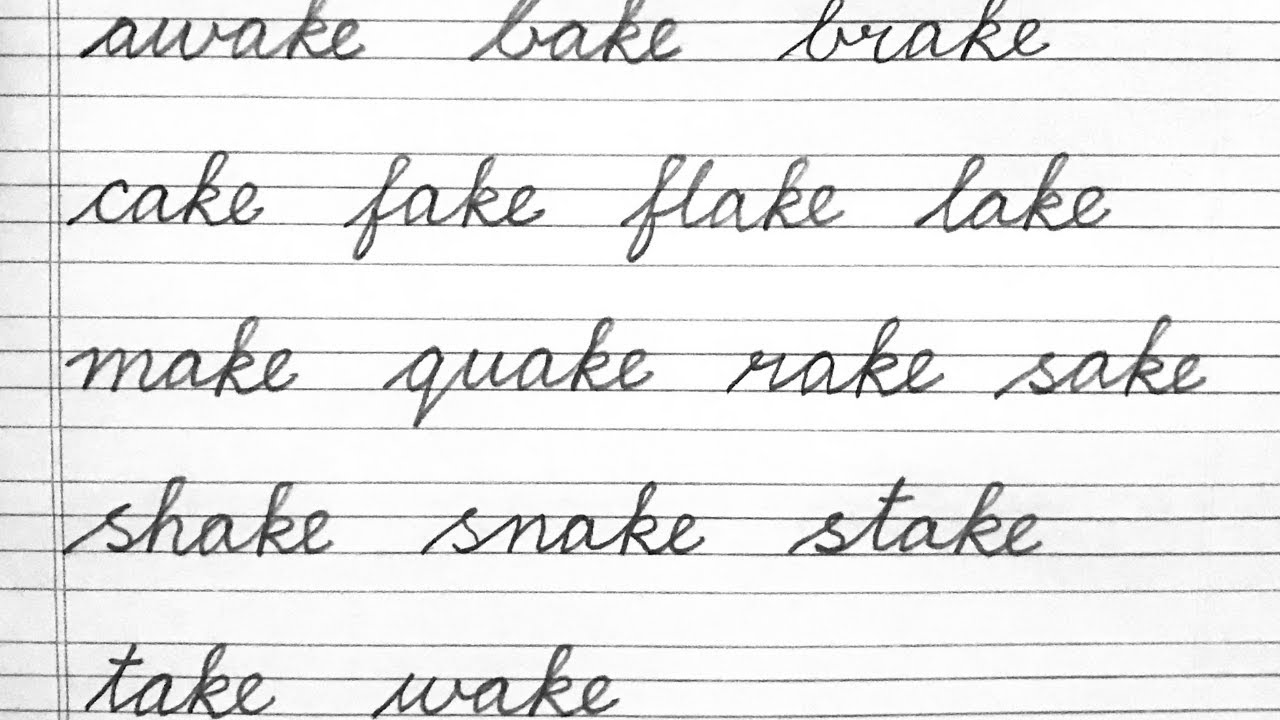 awake bake brake
cake fake flake lake
make quake rake sake
shake snake stake
take wake